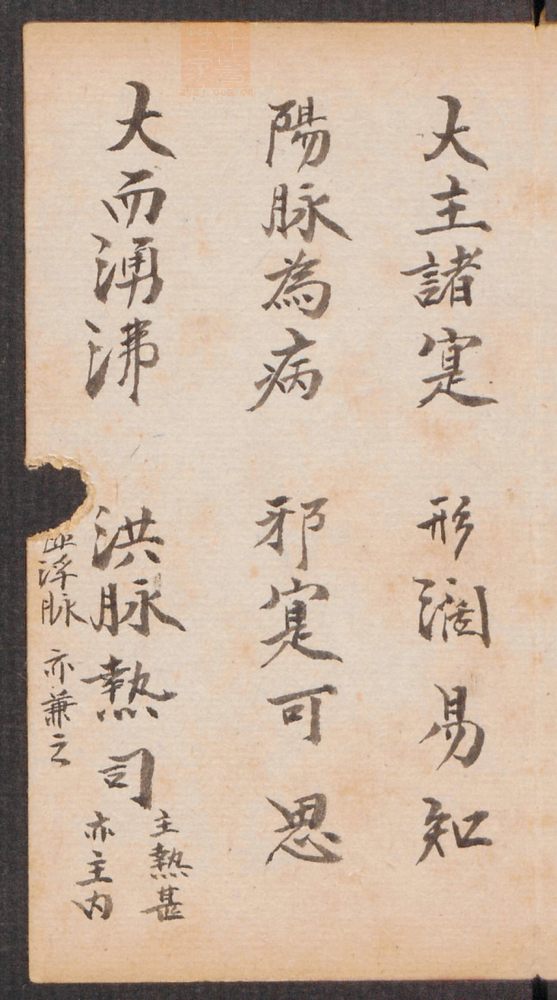 大主諸寔 形濶易知
陽脉為病 邪寔可思
大而湧沸 洪脉熱司
主熱甚
亦主内
浮脉 亦兼之